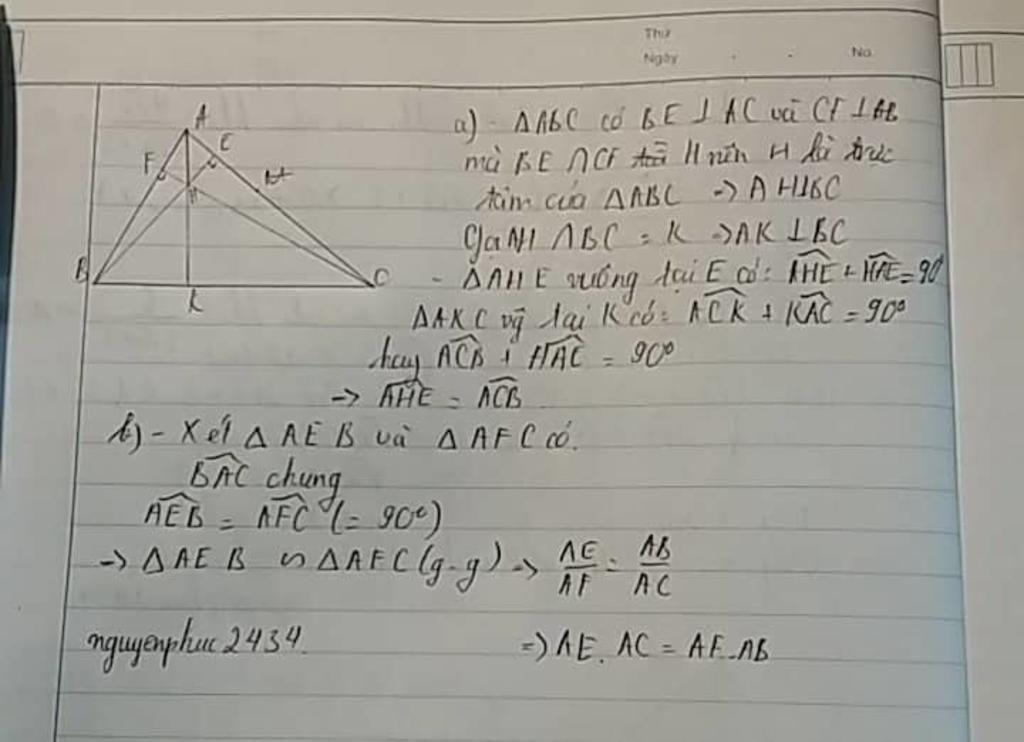 Thứ
Ngày . . No.
A
E
F
M
H
B
C
K
a) - ΔABC có BE ⊥ AC và CF ⊥ AB
mà BE ∩ CF tại H nên H là trực
tâm của ΔABC -> AH⊥BC
Gọi AH ∩ BC = K -> AK ⊥ BC
- ΔAHE vuông tại E có: \widehat{AHE} + \widehat{HAE} = 90°
ΔAKC vg tại K có: \widehat{ACK} + \widehat{KAC} = 90°
hay \widehat{ACB} + \widehat{HAC} = 90°
-> \widehat{AHE} = \widehat{ACB}
b) - Xét Δ AEB và Δ AFC có.
\widehat{BAC} chung
\widehat{AEB} = \widehat{AFC} (= 90°)
-> Δ AEB ∽ Δ AFC (g-g) -> \frac{AE}{AF} = \frac{AB}{AC}
nguyenphuc2434. => AE. AC = AF.AB